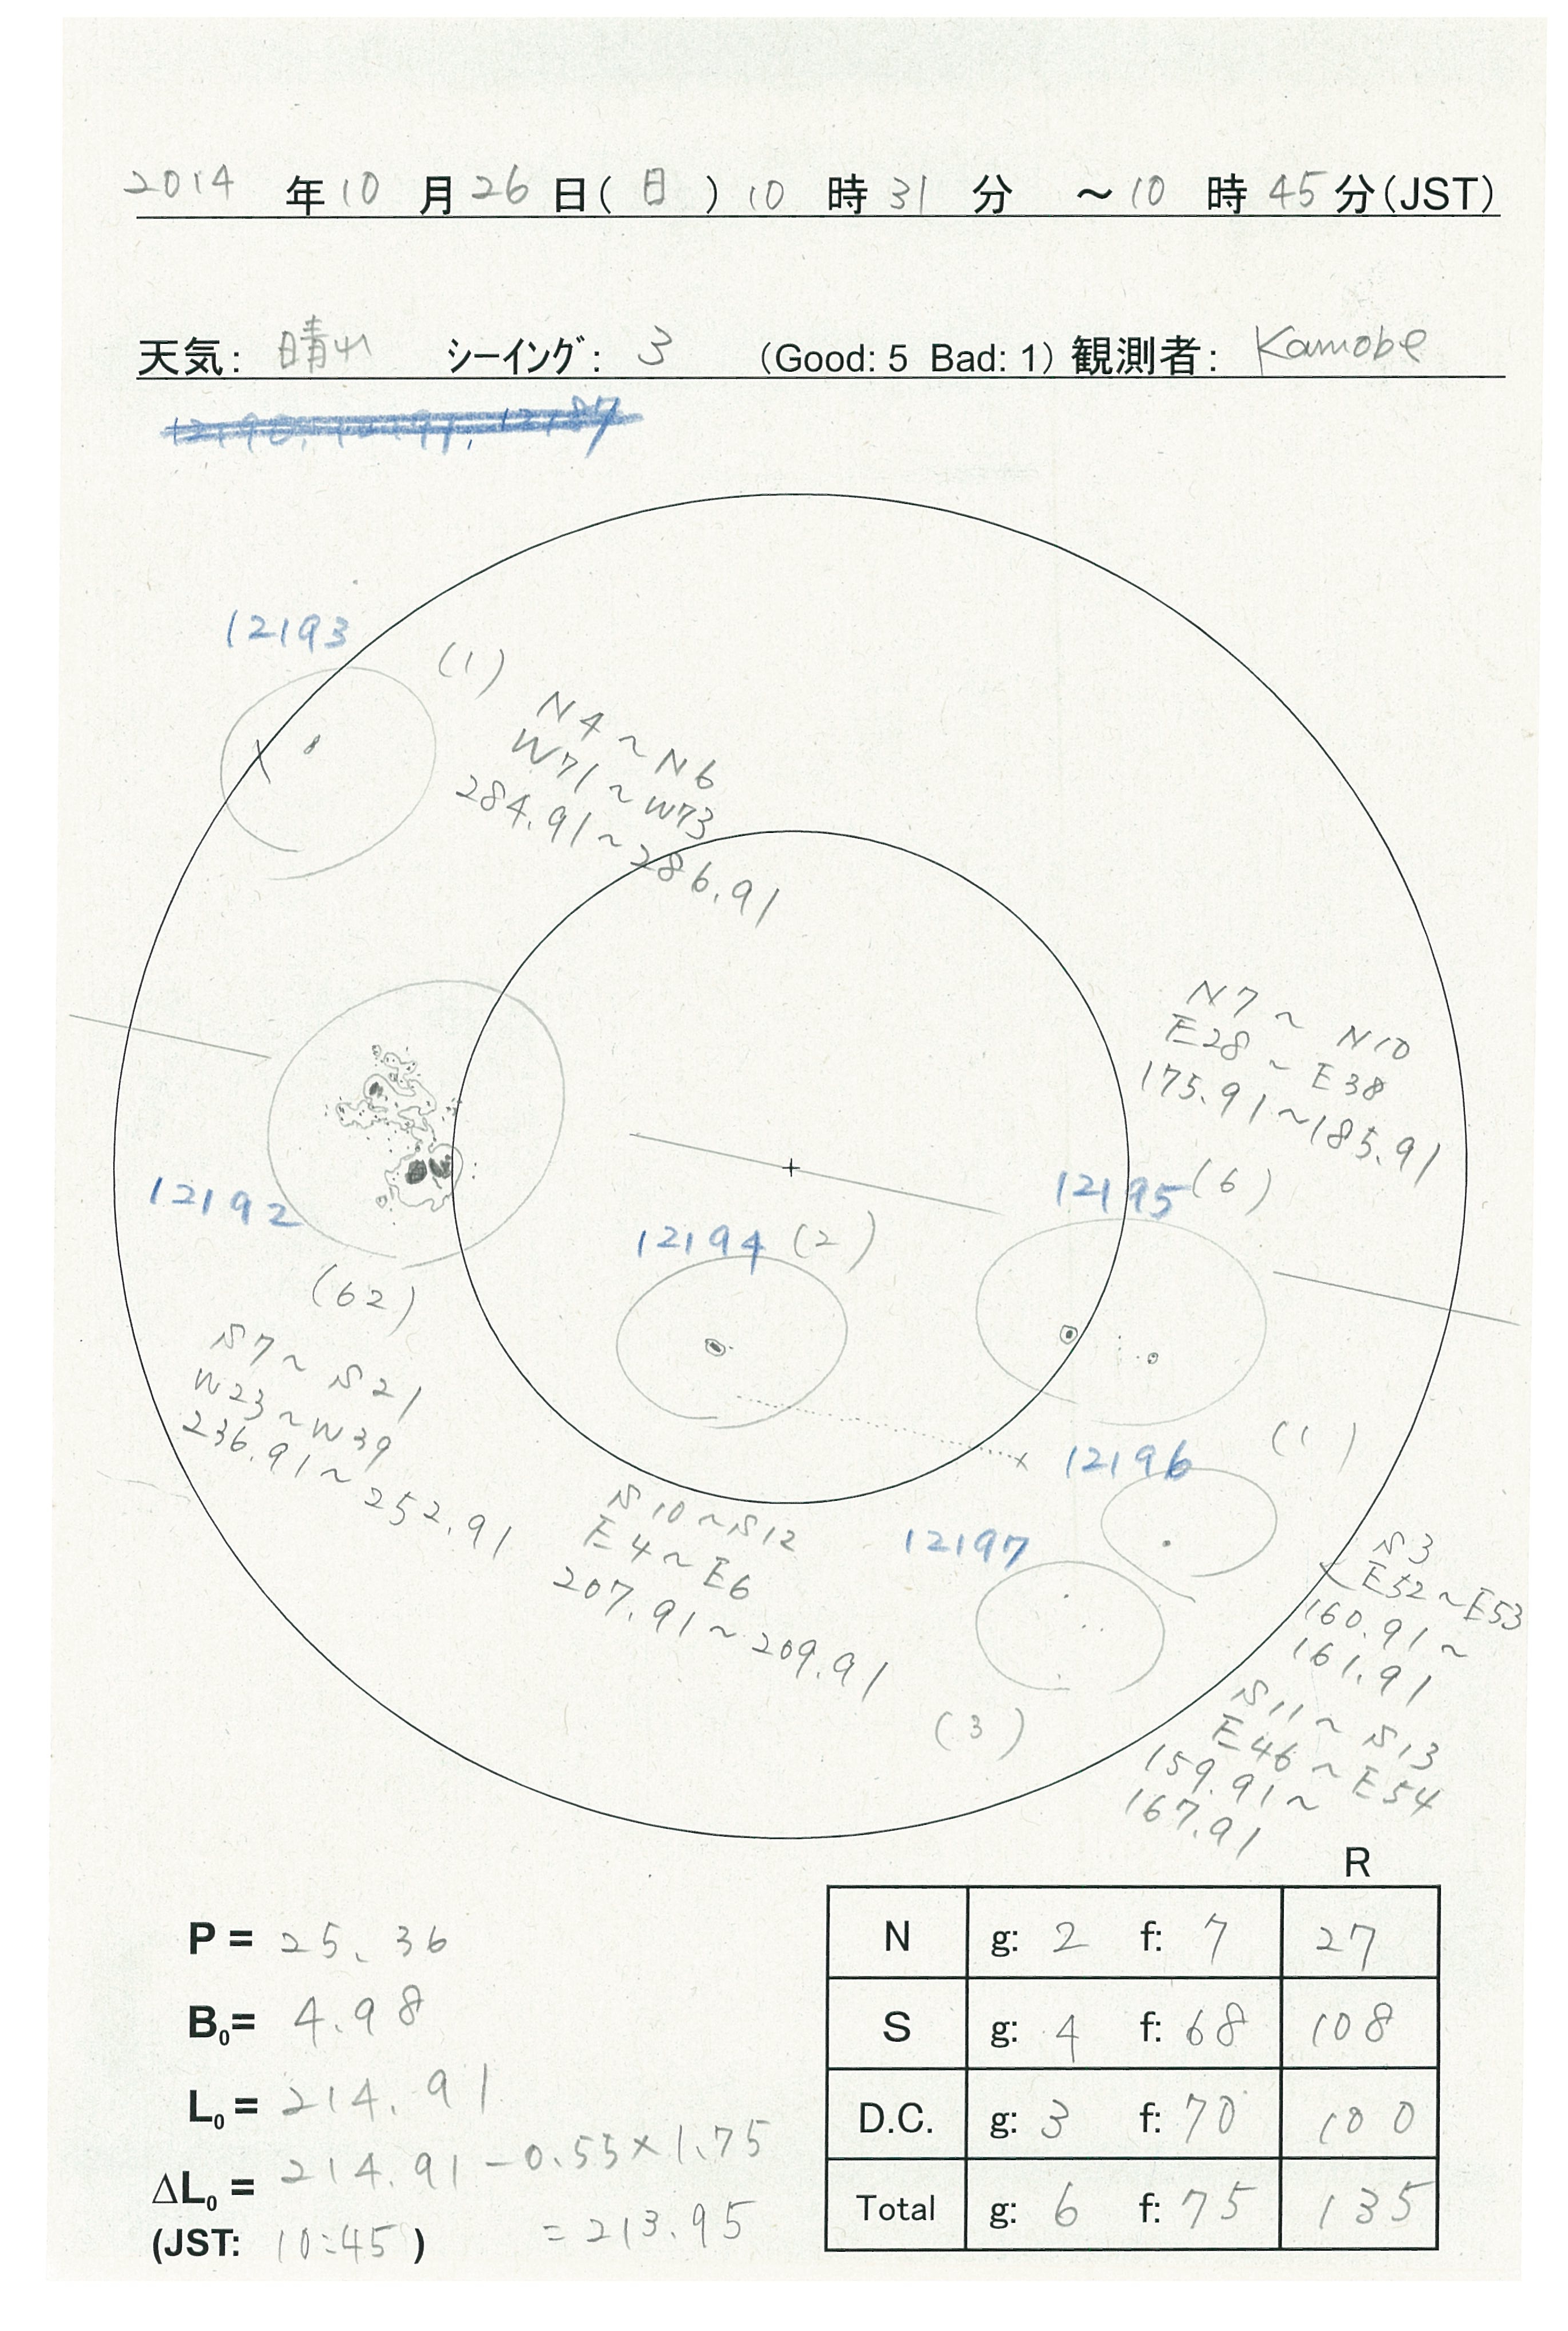 2014 年 10 月 26 日( 日 ) 10 時 31 分 ～ 10 時 45 分(JST)
天気: 晴れ シーイング: 3 (Good: 5 Bad: 1) 観測者: Kamobe
12193
(1)
N4～N6
W71～W73
284.91～286.91
N7～N10
E28～E38
175.91～185.91
12195 (6)
12192
(62)
S7～S21
W23～W39
236.91～252.91
12194 (2)
S10～S12
E4～E6
207.91～209.91
12196
(1)
S3
E52～E53
160.91～
161.91
12197
(3)
S11～S13
E46～E54
159.91～
167.91
R
N g: 2 f: 7 27
S g: 4 f: 68 108
D.C. g: 3 f: 70 100
Total g: 6 f: 75 135
P = 25.36
B0= 4.98
L0= 214.91
ΔL0= 214.91-0.55×1.75
(JST: 10:45) =213.95